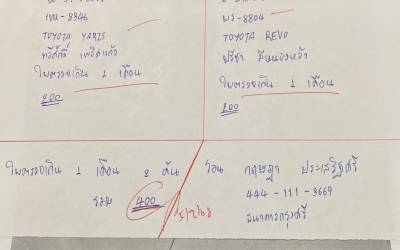 ขน-8846
TOYOTA YARIS
ใบตรวจเกิน 1 เดือน
200
พร-8804
TOYOTA REVO
ปรีชา สีหนองหว้า
ใบตรวจเกิน 1 เดือน
200
ใบตรวจเกิน 1 เดือน 2 คัน
รวม 400
5/2/68
โอน กฤษฎา ประเสริฐศรี
444-111-3669
ธนาคารกรุงศรี